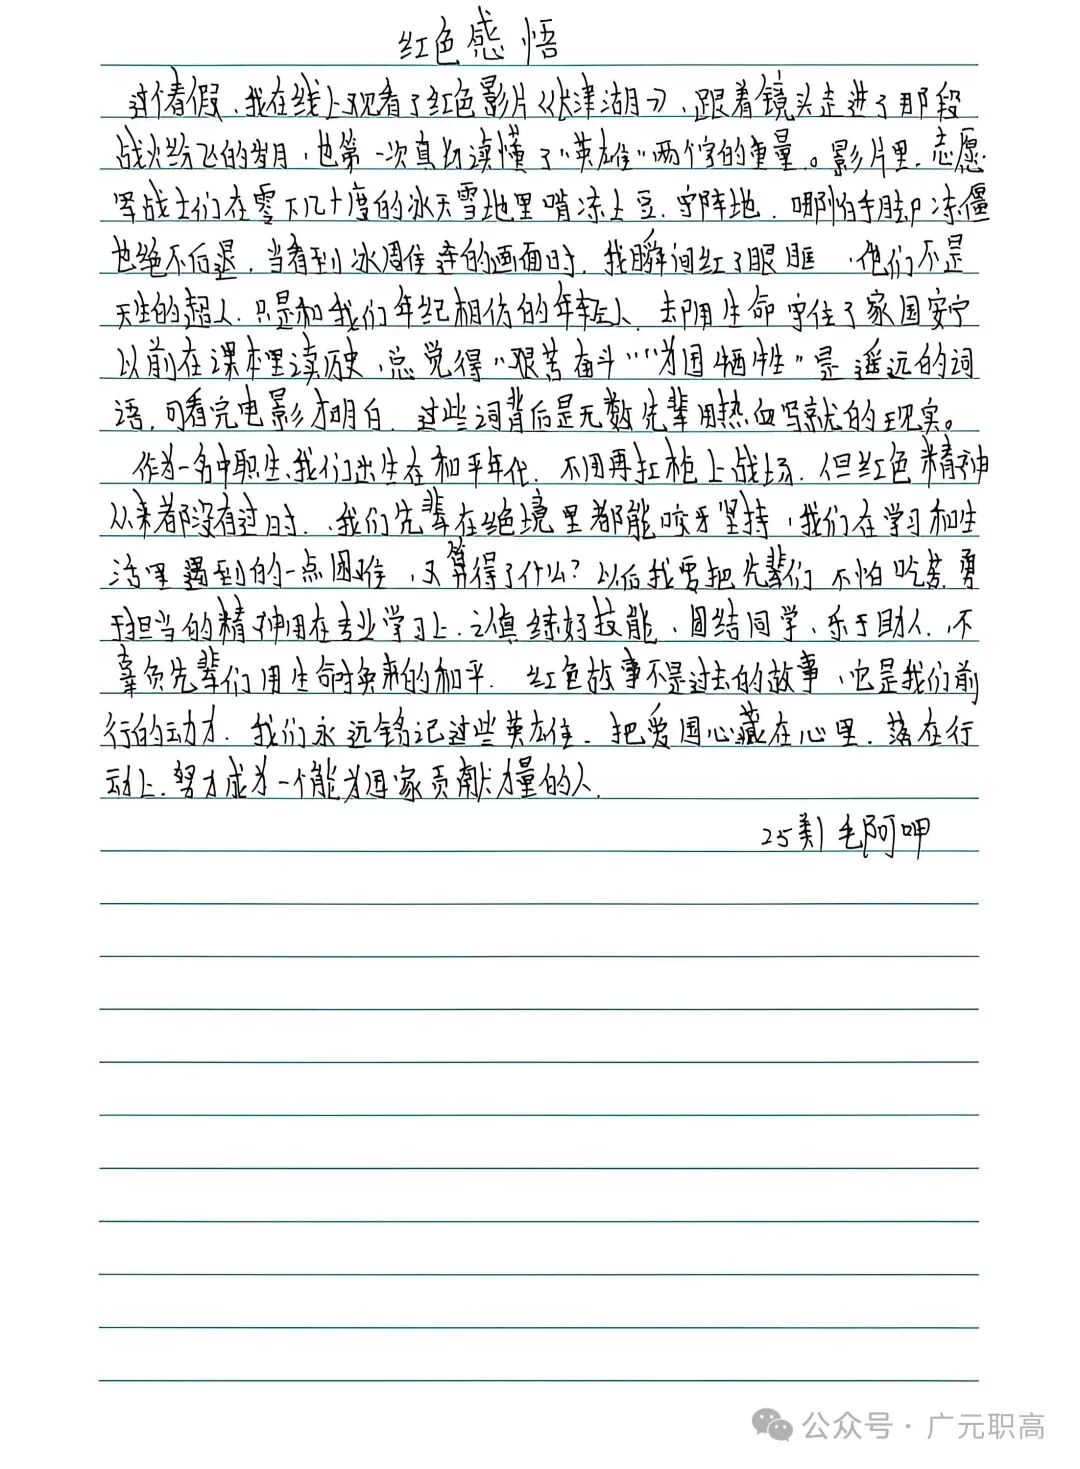 红色感悟
这个春假，我在线上观看了红色影片《长津湖》，跟着镜头走进了那段
战火纷飞的岁月，也第一次真切读懂了“英雄”两个字的重量。影片里，志愿
军战士们在零下几十度的冰天雪地里啃冻土豆，守阵地，哪怕手脚冻僵
也绝不后退，当看到冰雕连的画面时，我瞬间红了眼眶，他们不是
天生的超人，只是和我们年纪相仿的年轻人，却用生命守住了家国安宁
以前在课本里读历史，总觉得“艰苦奋斗”“为国牺牲”是遥远的词
语，可看完电影才明白，这些词背后是无数先辈用热血写就的现实。
作为一名中职生，我们出生在和平年代，不用再扛枪上战场，但红色精神
从来都没有过时，我们先辈在绝境里都能咬牙坚持，我们在学习和生
活里遇到的一点困难，又算得了什么？以后我要把先辈们不怕吃苦，勇
于担当的精神用在专业学习上，认真练好技能，团结同学，乐于助人，不
辜负先辈们用生命换来的和平，红色故事不是过去的故事，它是我们前
行的动力，我们永远铭记这些英雄，把爱国心藏在心里，落在行
动上，努力成为一个能为国家贡献力量的人。
25美1 毛阿呷
公众号·广元职高